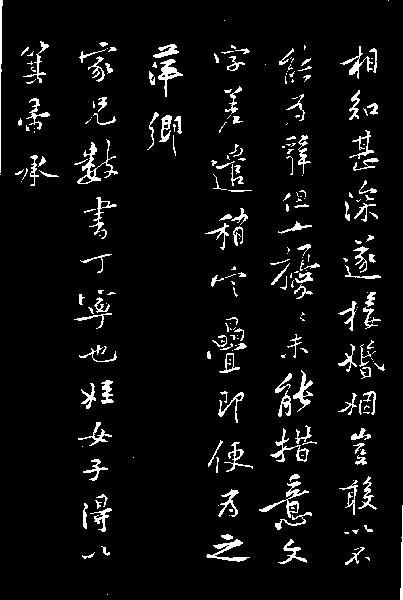 相知甚深遂接婚姻豈敢以不
能为辭但土擾〻未能措意文
字差遣稍定疊即便为之
萍鄉
家兄數書丁寧也姪女子得以
箕帚承